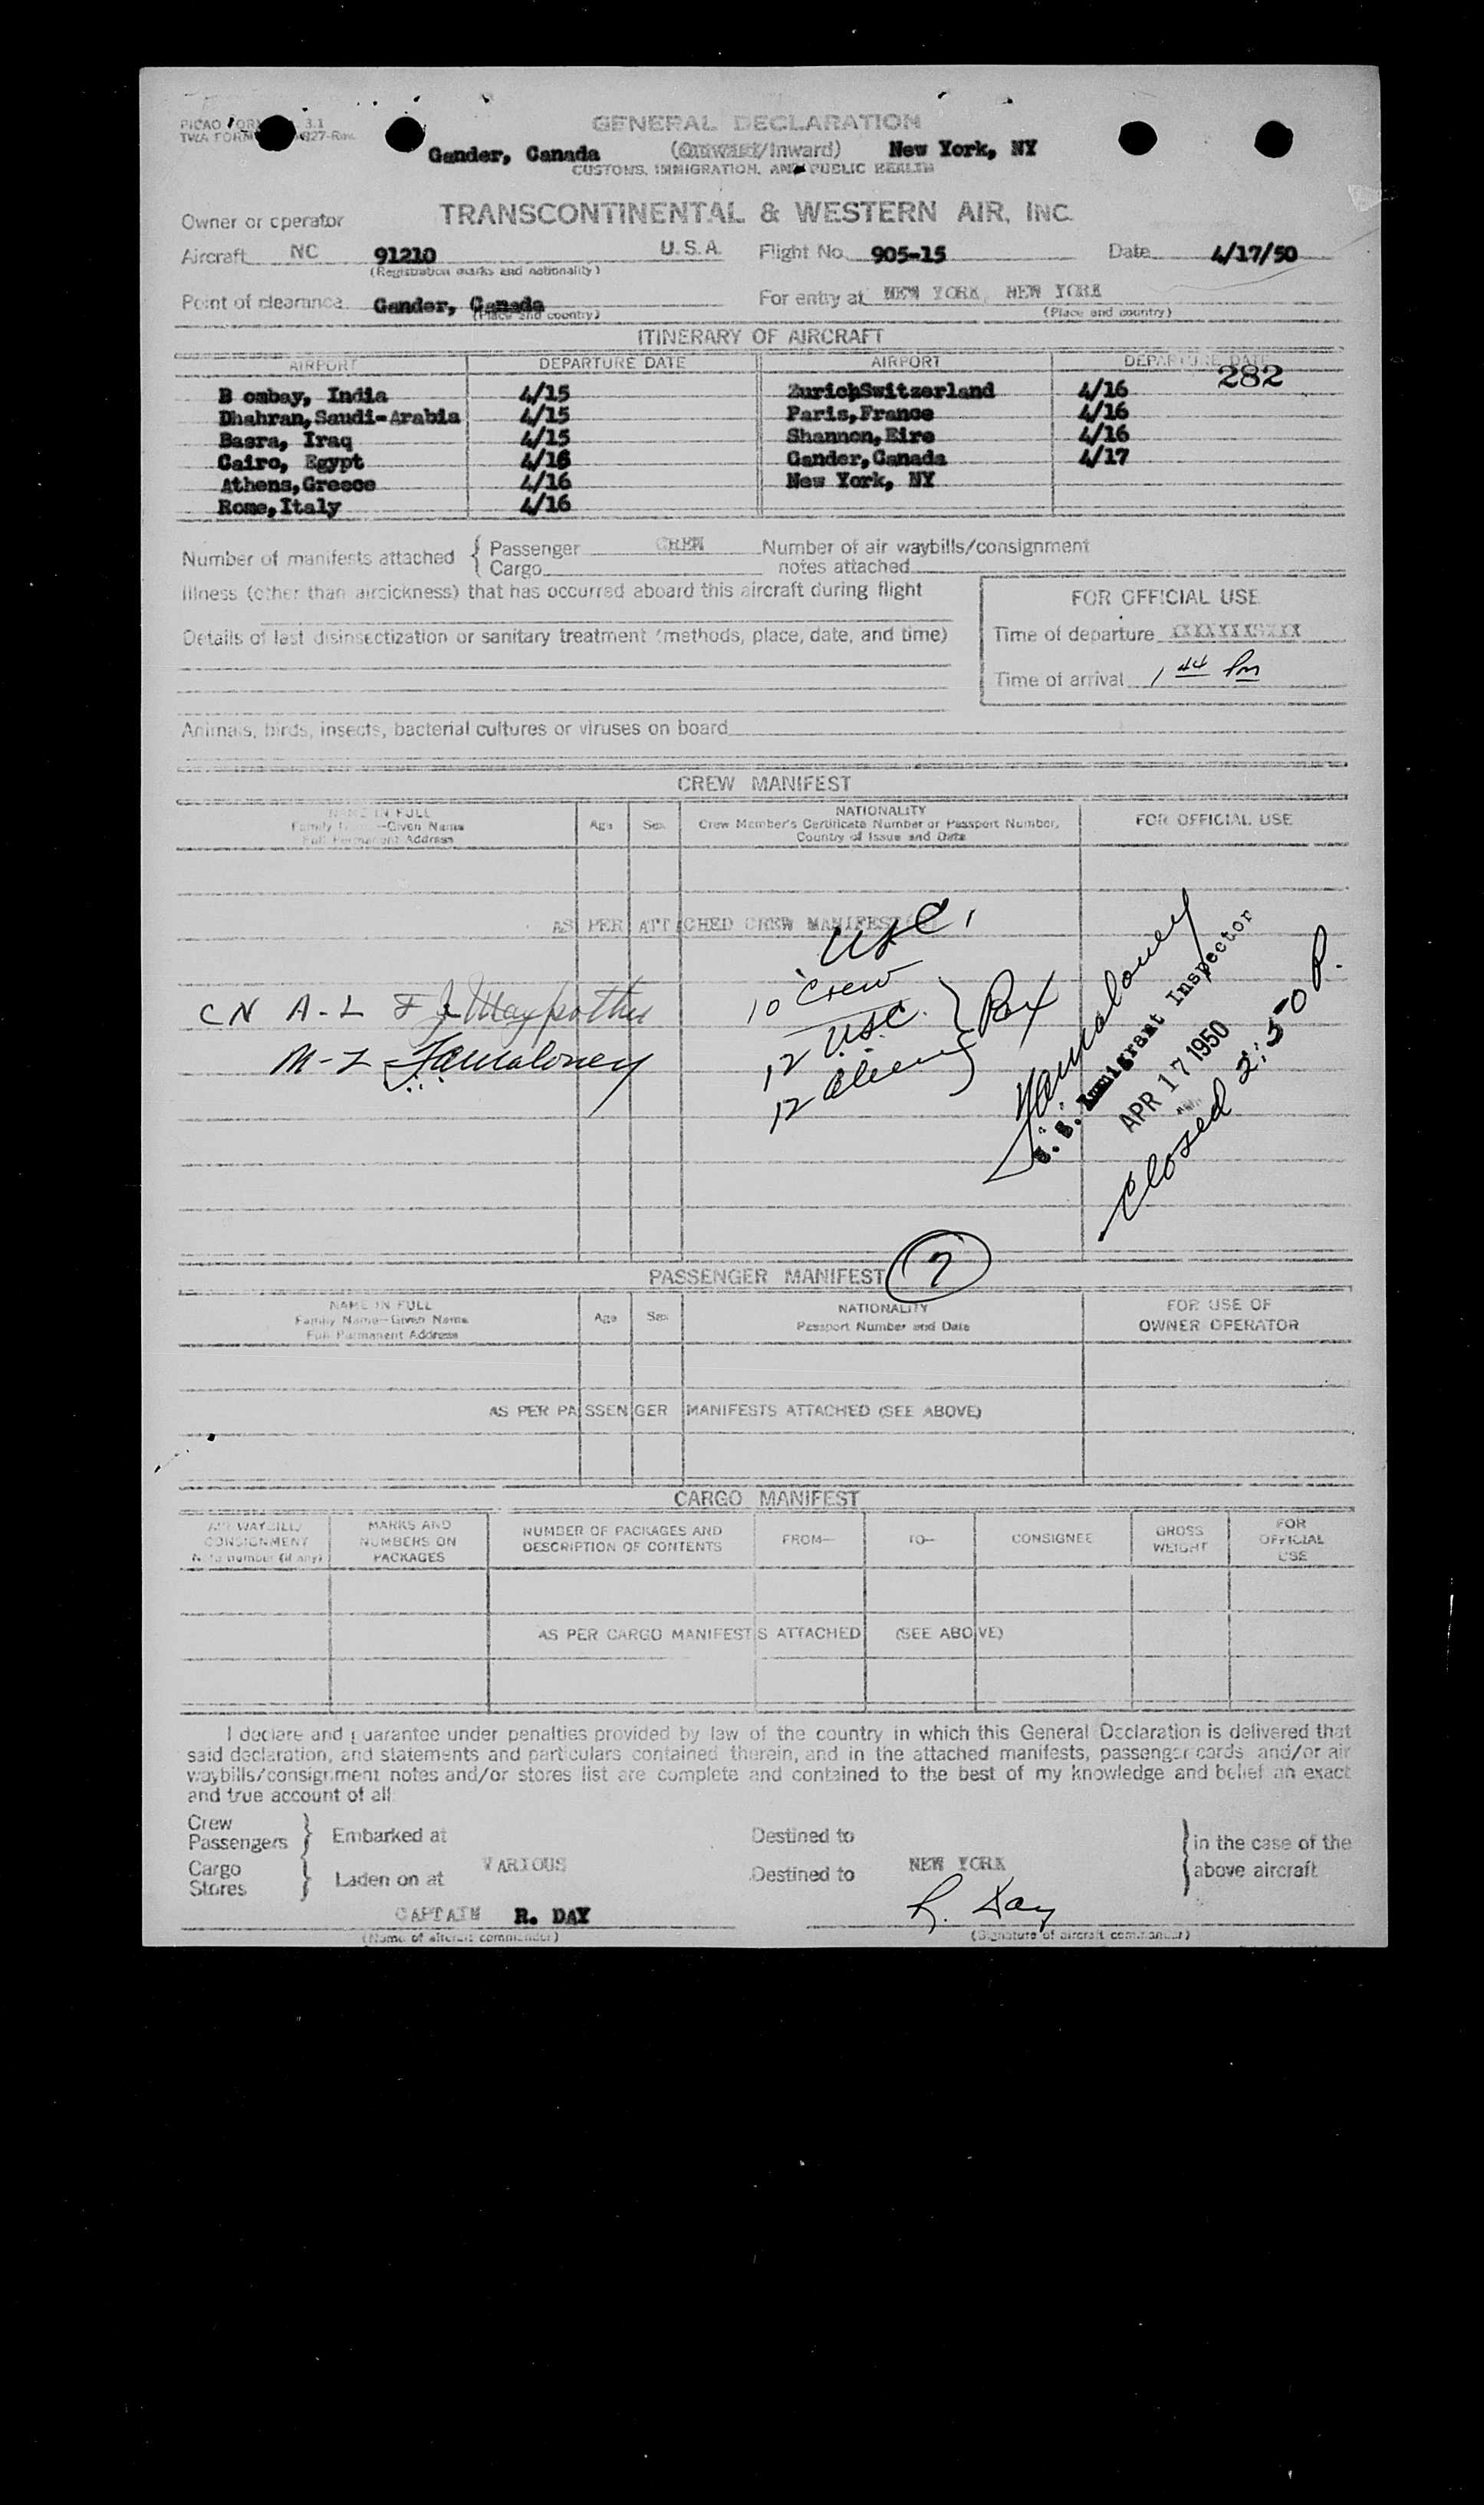 PICAO FORM 3.1
TWA FORM 27-Rev.
GENERAL DECLARATION
Gander, Canada (Outward/Inward) New York, NY
CUSTOMS, IMMIGRATION, AND PUBLIC HEALTH
Owner or operator TRANSCONTINENTAL & WESTERN AIR, INC.
Aircraft NC 91210 U.S.A. Flight No. 905-15 Date 4/17/50
(Registration marks and nationality)
Point of clearance Gander, Canada For entry at NEW YORK, NEW YORK
(Place and country) (Place and country)
ITINERARY OF AIRCRAFT
AIRPORT DEPARTURE DATE AIRPORT DEPARTURE DATE
282
B ombay, India 4/15 Zurich,Switzerland 4/16
Dhahran,Saudi-Arabia 4/15 Paris,France 4/16
Basra, Iraq 4/15 Shannon,Eire 4/16
Cairo, Egypt 4/16 Gander,Canada 4/17
Athens,Greece 4/16 New York, NY
Rome,Italy 4/16
Number of manifests attached { Passenger CREW Number of air waybills/consignment
Cargo notes attached
Illness (other than airsickness) that has occurred aboard this aircraft during flight
FOR OFFICIAL USE
Details of last disinsectization or sanitary treatment (methods, place, date, and time)
Time of departure
Time of arrival 1 44 Pm
Animals, birds, insects, bacterial cultures or viruses on board
CREW MANIFEST
NAME IN FULL
Family Name—Given Name
Full Permanent Address
Age Sex
NATIONALITY
Crew Member's Certificate Number or Passport Number,
Country of Issue and Date
FOR OFFICIAL USE
AS PER ATTACHED CREW MANIFEST
USC.
10 Crew
12 USC.
12 Aliens } Pax
CN A-L
M-Z Famaloney
Famaloney
U.S. Immigrant Inspector
APR 17 1950
Closed 2:50 P.
PASSENGER MANIFEST 7
NAME IN FULL
Family Name—Given Name
Full Permanent Address
Age Sex
NATIONALITY
Passport Number and Date
FOR USE OF
OWNER OPERATOR
AS PER PASSENGER MANIFESTS ATTACHED (SEE ABOVE)
CARGO MANIFEST
AIR WAYBILL/
CONSIGNMENT
Note number (if any)
MARKS AND
NUMBERS ON
PACKAGES
NUMBER OF PACKAGES AND
DESCRIPTION OF CONTENTS
FROM— TO— CONSIGNEE
GROSS
WEIGHT
FOR
OFFICIAL
USE
AS PER CARGO MANIFESTS ATTACHED (SEE ABOVE)
I declare and guarantee under penalties provided by law of the country in which this General Declaration is delivered that
said declaration, and statements and particulars contained therein, and in the attached manifests, passenger cards and/or air
waybills/consignment notes and/or stores list are complete and contained to the best of my knowledge and belief an exact
and true account of all
Crew
Passengers } Embarked at Destined to } in the case of the
Cargo
Stores } Laden on at VARIOUS Destined to NEW YORK above aircraft
CAPTAIN R. DAY R. Day
(Name of aircraft commander) (Signature of aircraft commander)